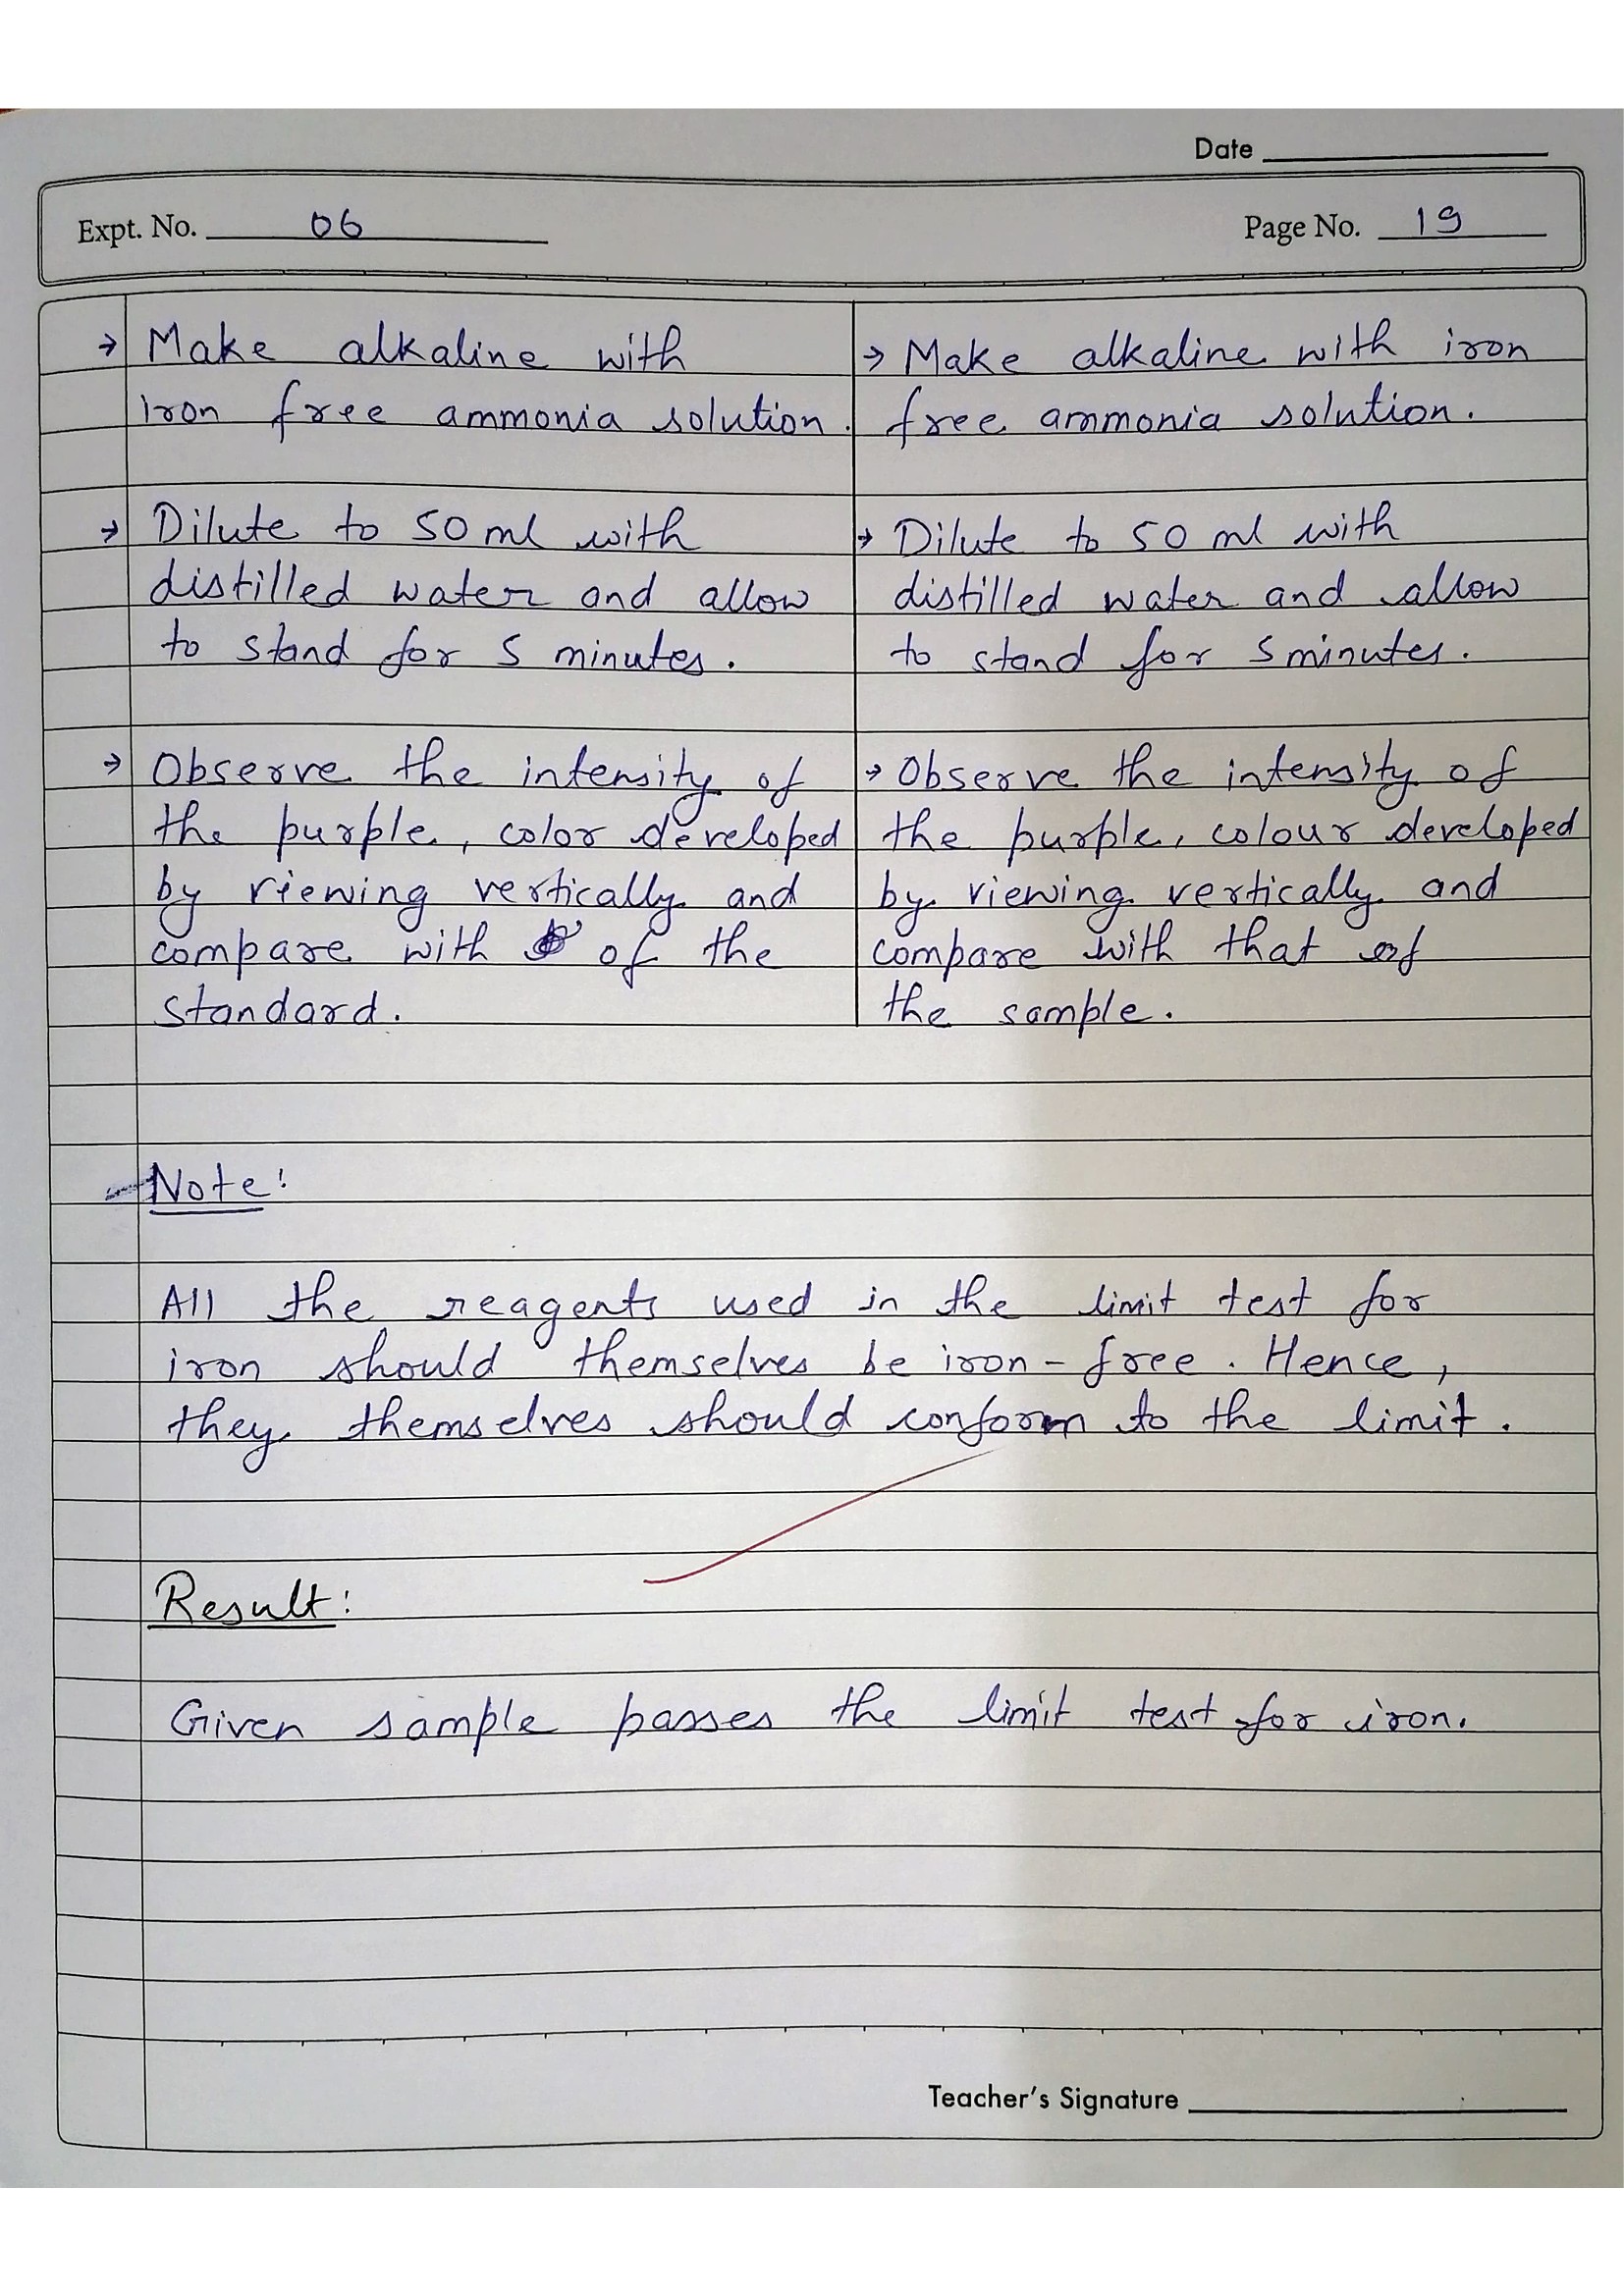 Date
Expt. No. 06
Page No. 19
→ Make alkaline with
iron free ammonia solution.
→ Dilute to 50 ml with
distilled water and allow
to stand for 5 minutes.
→ Observe the intensity of
the purple, color developed
by viewing vertically and
compare with of the
standard.
→ Make alkaline with iron
free ammonia solution.
→ Dilute to 50 ml with
distilled water and allow
to stand for 5 minutes.
→ Observe the intensity of
the purple, colour developed
by viewing vertically and
compare with that of
the sample.
Note:
All the reagents used in the limit test for
iron should themselves be iron-free. Hence,
they themselves should conform to the limit.
Result:
Given sample passes the limit test for iron.
Teacher's Signature